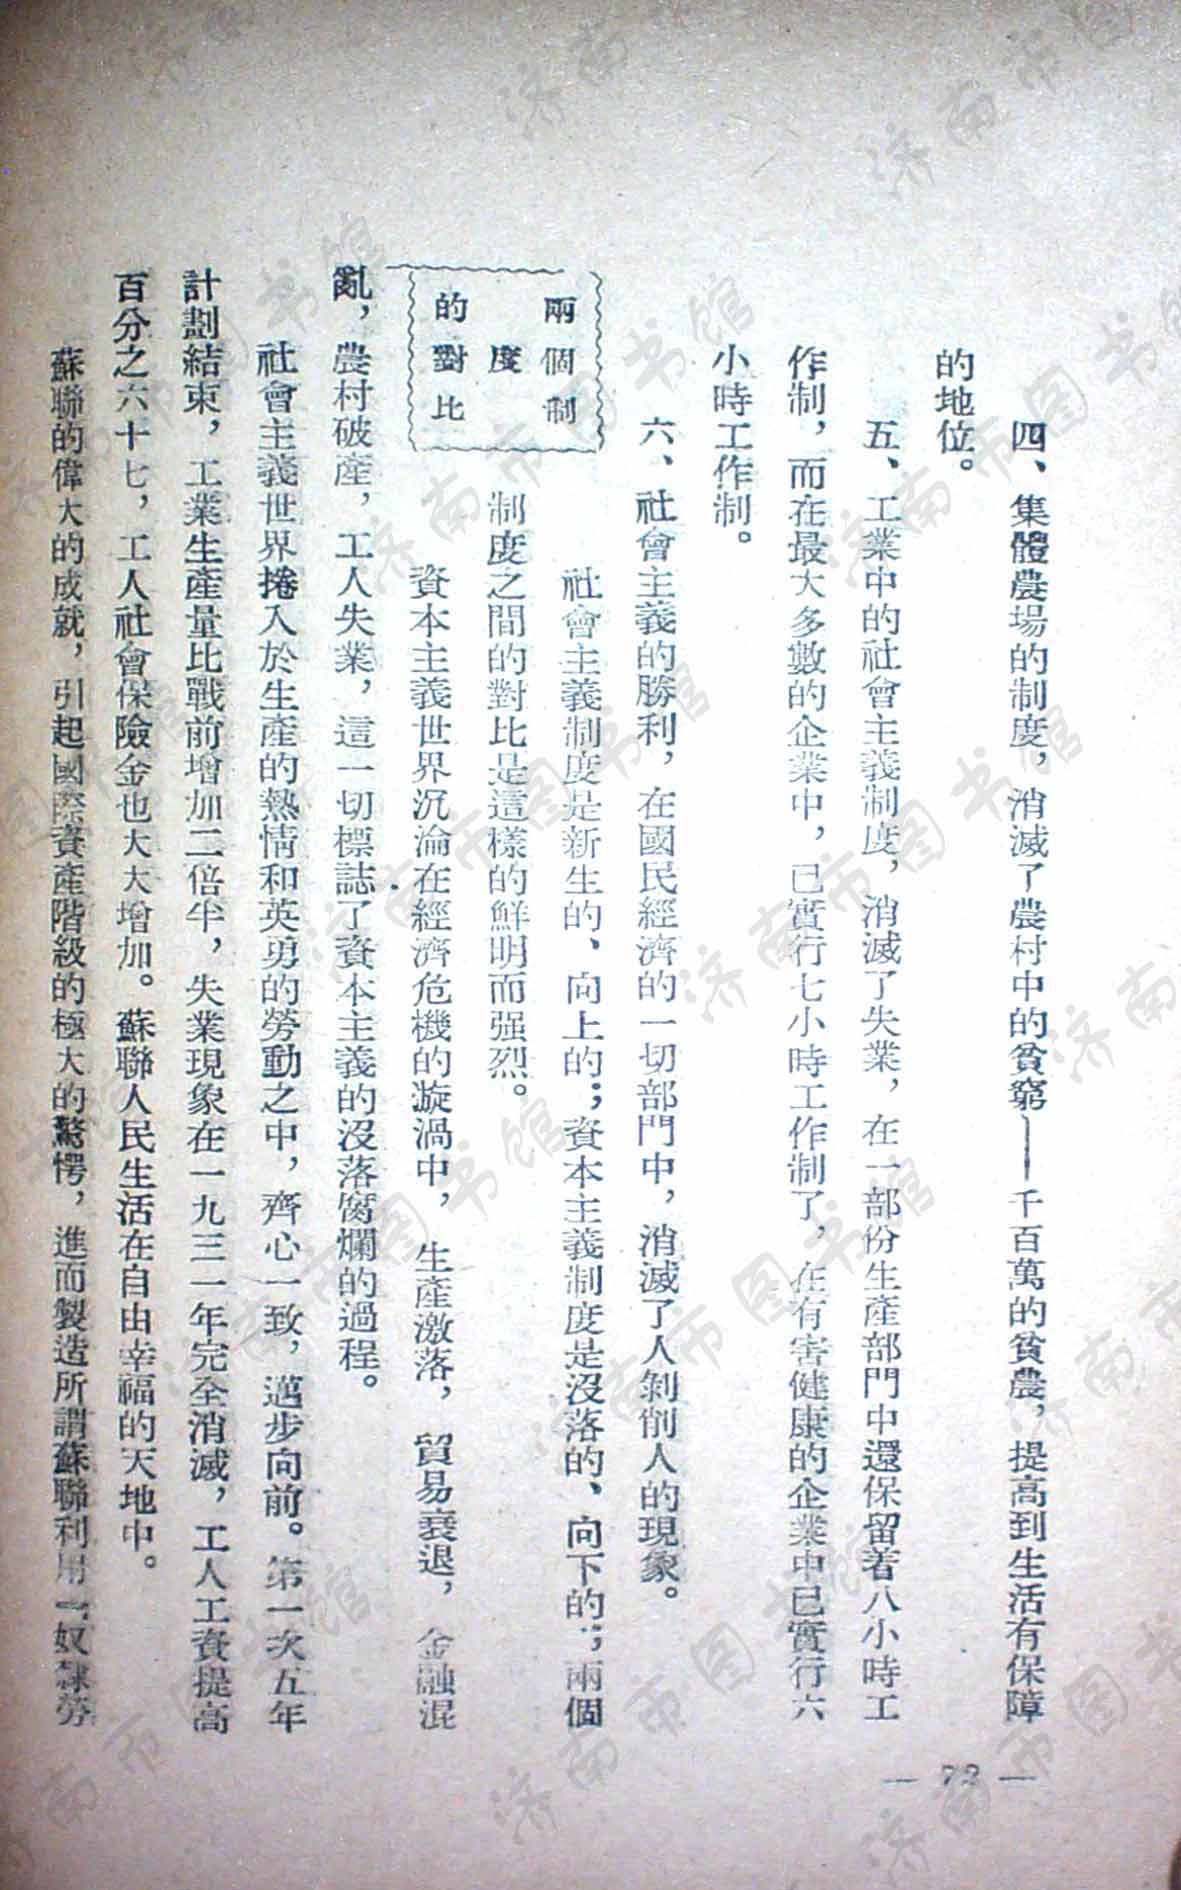 四、集體農場的制度，消滅了農村中的貧窮——千百萬的貧農，提高到生活有保障
的地位。
五、工業中的社會主義制度，消滅了失業，在一部份生產部門中還保留着八小時工
作制，而在最大多數的企業中，已實行七小時工作制了，在有害健康的企業中已實行六
小時工作制。
六、社會主義的勝利，在國民經濟的一切部門中，消滅了人剝削人的現象。
兩個制
度
的對比
社會主義制度是新生的、向上的；資本主義制度是沒落的、向下的；兩個
制度之間的對比是這樣的鮮明而强烈。
資本主義世界沉淪在經濟危機的漩渦中，生產激落，貿易衰退，金融混
亂，農村破產，工人失業，這一切標誌了資本主義的沒落腐爛的過程。
社會主義世界捲入於生產的熱情和英勇的勞動之中，齊心一致，邁步向前。第一次五年
計劃結束，工業生產量比戰前增加二倍半，失業現象在一九三一年完全消滅，工人工資提高
百分之六十七，工人社會保險金也大大增加。蘇聯人民生活在自由幸福的天地中。
蘇聯的偉大的成就，引起國際資產階級的極大的驚愕，進而製造所謂蘇聯利用「奴隸勞
— 72 —
济南市图书馆